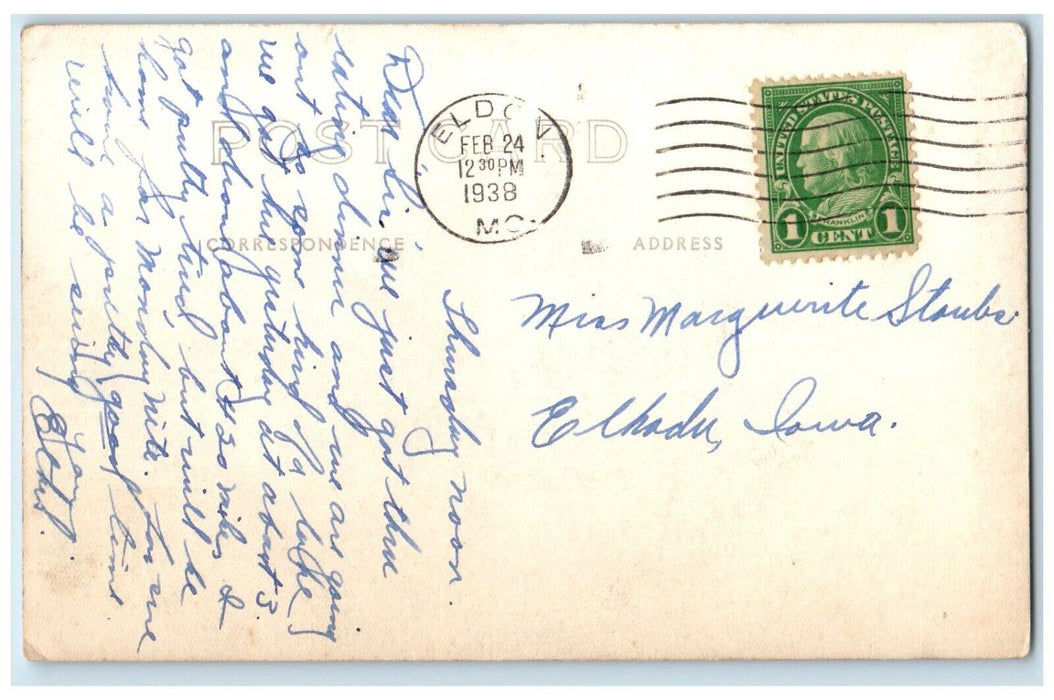 POST CARD
ELDON.
FEB 24
12 30 PM
1938
MO.
UNITED STATES POSTAGE
FRANKLIN
1 CENT 1
CORRESPONDENCE
ADDRESS
Thursday noon.
Dear Sis, we just got thru
eating dinner and we are going
out to some kind of a lake
we got here yesterday at about 3.
and drove about 430 miles &
got pretty tired, but will be
home for Monday nite. Too we
have a pretty good time
will be seeing you.
Miss Marguerite Staubs
Elkader, Iowa.